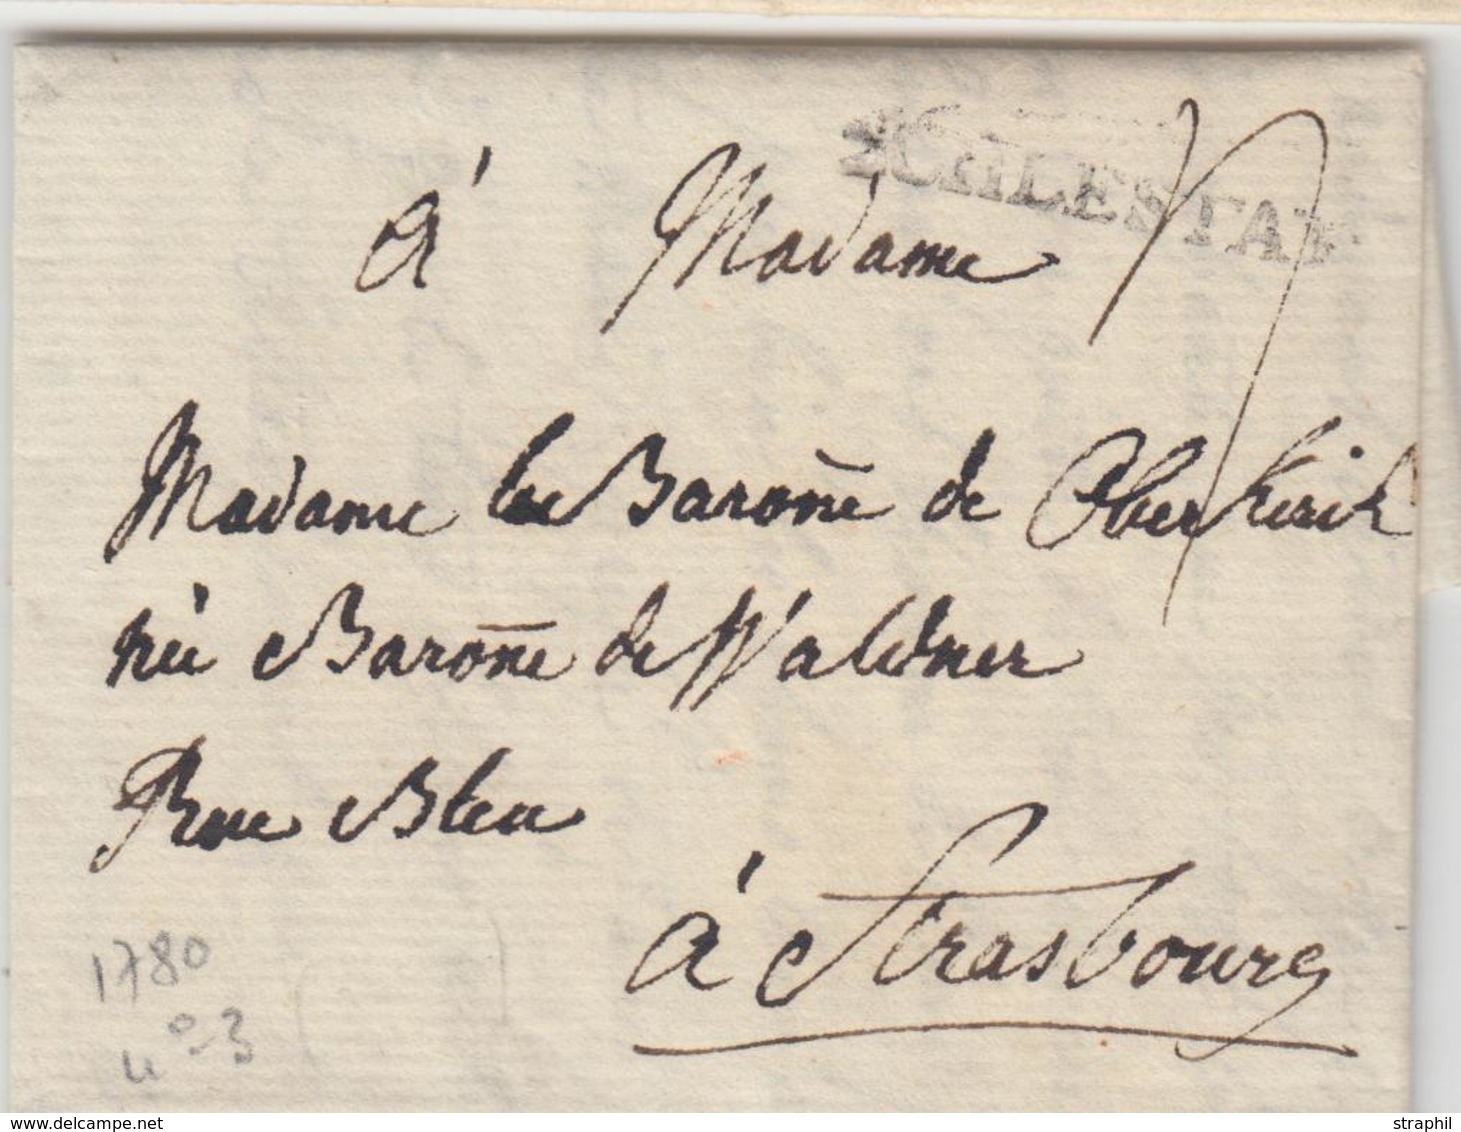 SCHLESTAT
à Madame
Madame la Baroñe de Oberkirch
née Baroñe de Waldner
Rue Bleu
à Strasbourg
1780
n° 3
delcampe.net
straphil